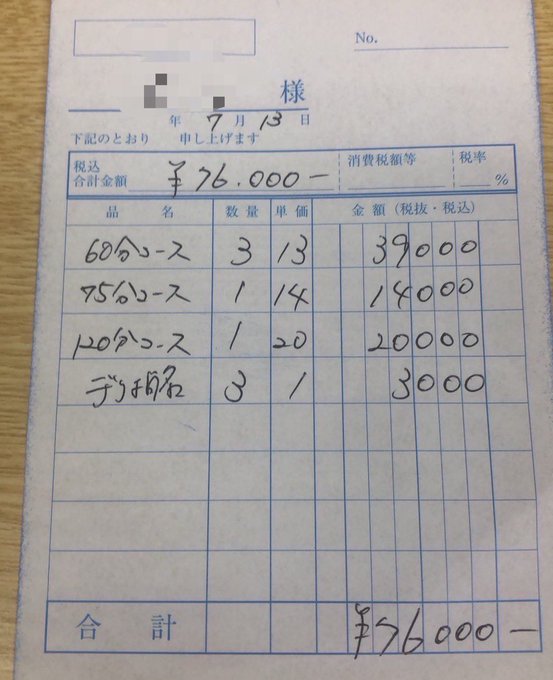 No.
様
年 7 月 13 日
下記のとおり 申し上げます
税込合計金額 ¥76.000- 消費税額等 税率 %
品名 数量 単価 金額(税抜・税込)
60分コース 3 13 39000
75分コース 1 14 14000
120分コース 1 20 20000
デリ指名 3 1 3000
合計 ¥76000-